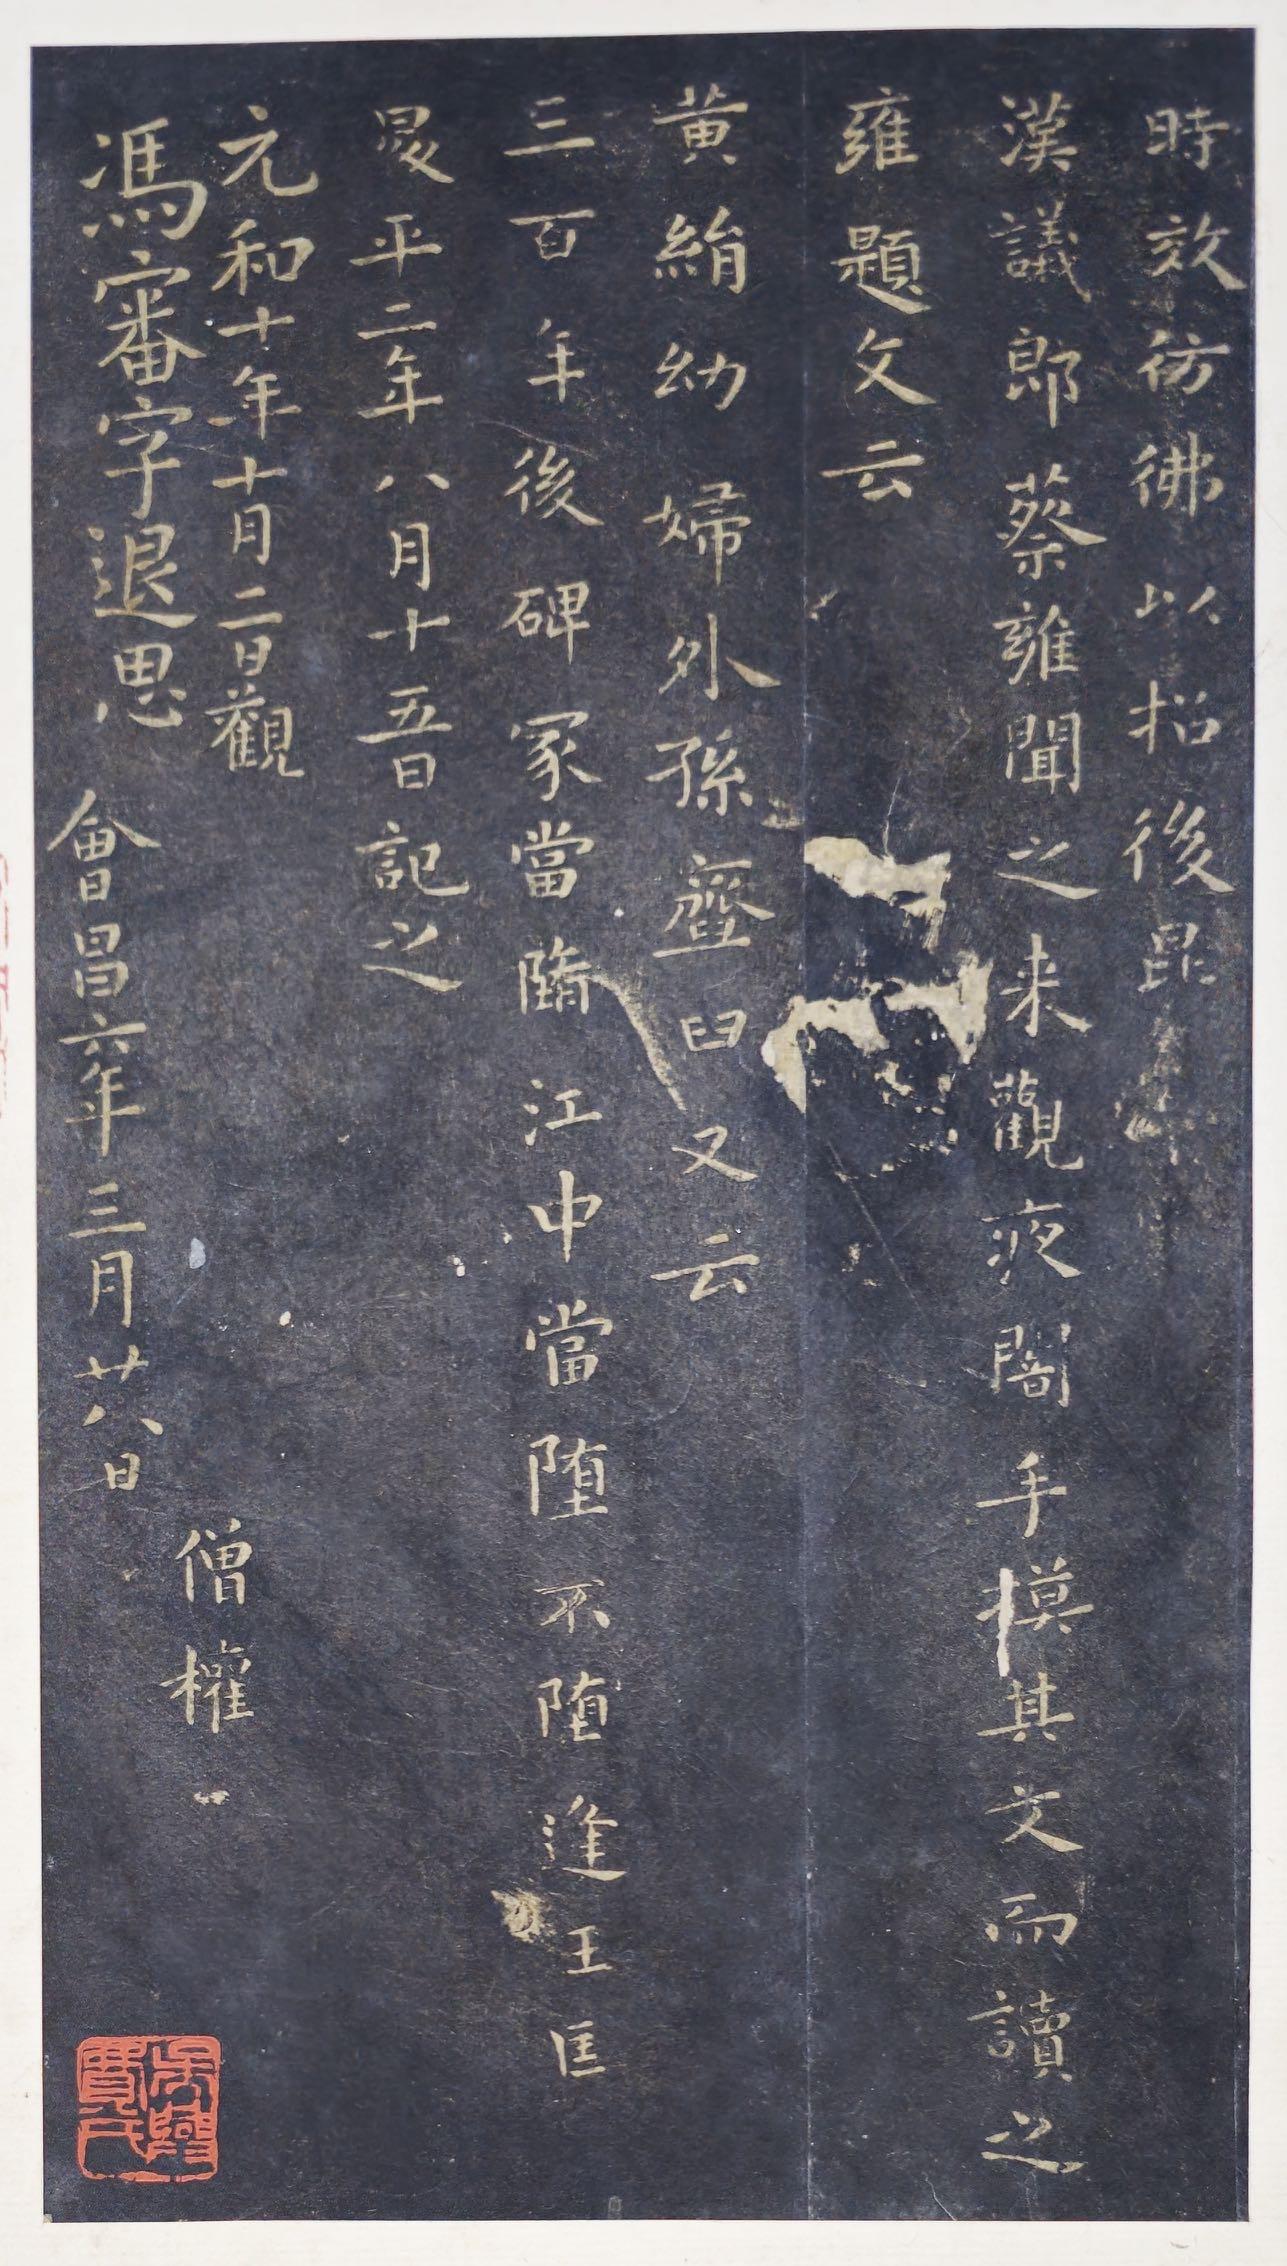 時效彷彿以招後昆
漢議郎蔡雍聞之来觀夜闇手摸其文而讀之
雍題文云
黃絹幼婦外孫齏臼又云
三百年後碑冢當墮江中當墮不墮逢王匡
平二年八月十五日記之
元和十年十月二日觀
僧權
馮審字退思
會昌六年三月廿八日